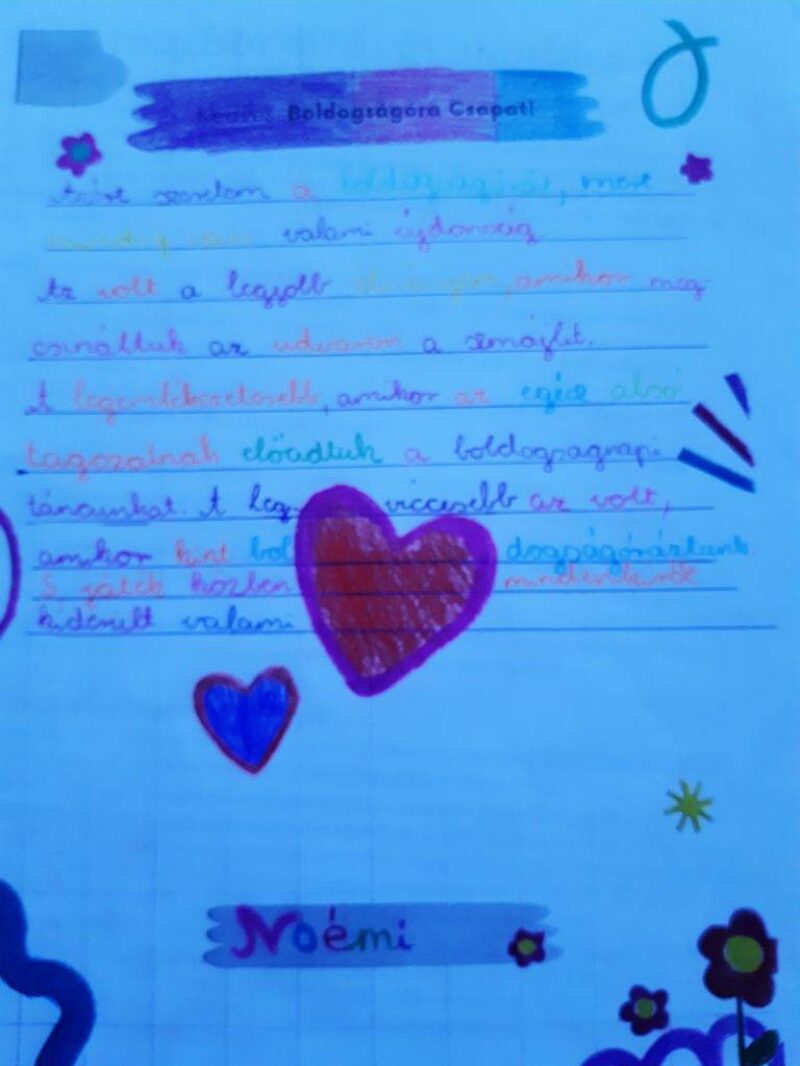 Kedves Boldogságóra Csapat!
Azért szeretem a boldogságórát, mert
mindig van valami újdonság.
Az volt a legjobb élményem, amikor meg-
csináltuk az udvaron a szmájlit.
A legemlékezetesebb, amikor az egész alsó
tagozatnak előadtuk a boldogságnapi
táncunkat. A leg viccesebb az volt,
amikor kint bol dogságóráztunk.
S játék közben mindenkiről
kiderült valami
Noémi